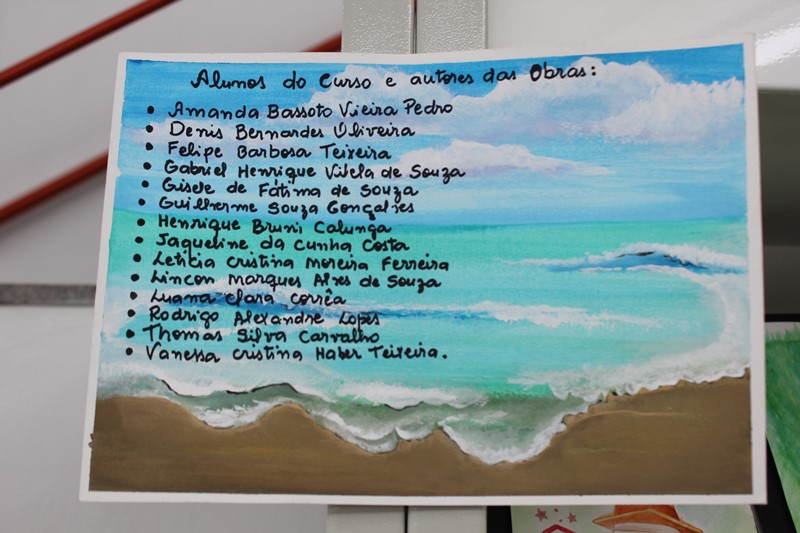 Alunos do Curso e autores das Obras:
• Amanda Bassoto Vieira Pedro
• Denis Bernardes Oliveira
• Felipe Barbosa Teixeira
• Gabriel Henrique Vilela de Souza
• Gisele de Fátima de Souza
• Guilherme Souza Gonçalves
• Henrique Bruni Calunga
• Jaqueline da Cunha Costa
• Letícia Cristina Moreira Ferreira
• Lincon Marques Alves de Souza
• Luana Clara Corrêa
• Rodrigo Alexandre Lopes
• Thomas Silva Carvalho
• Vanessa Cristina Haber Teixeira.